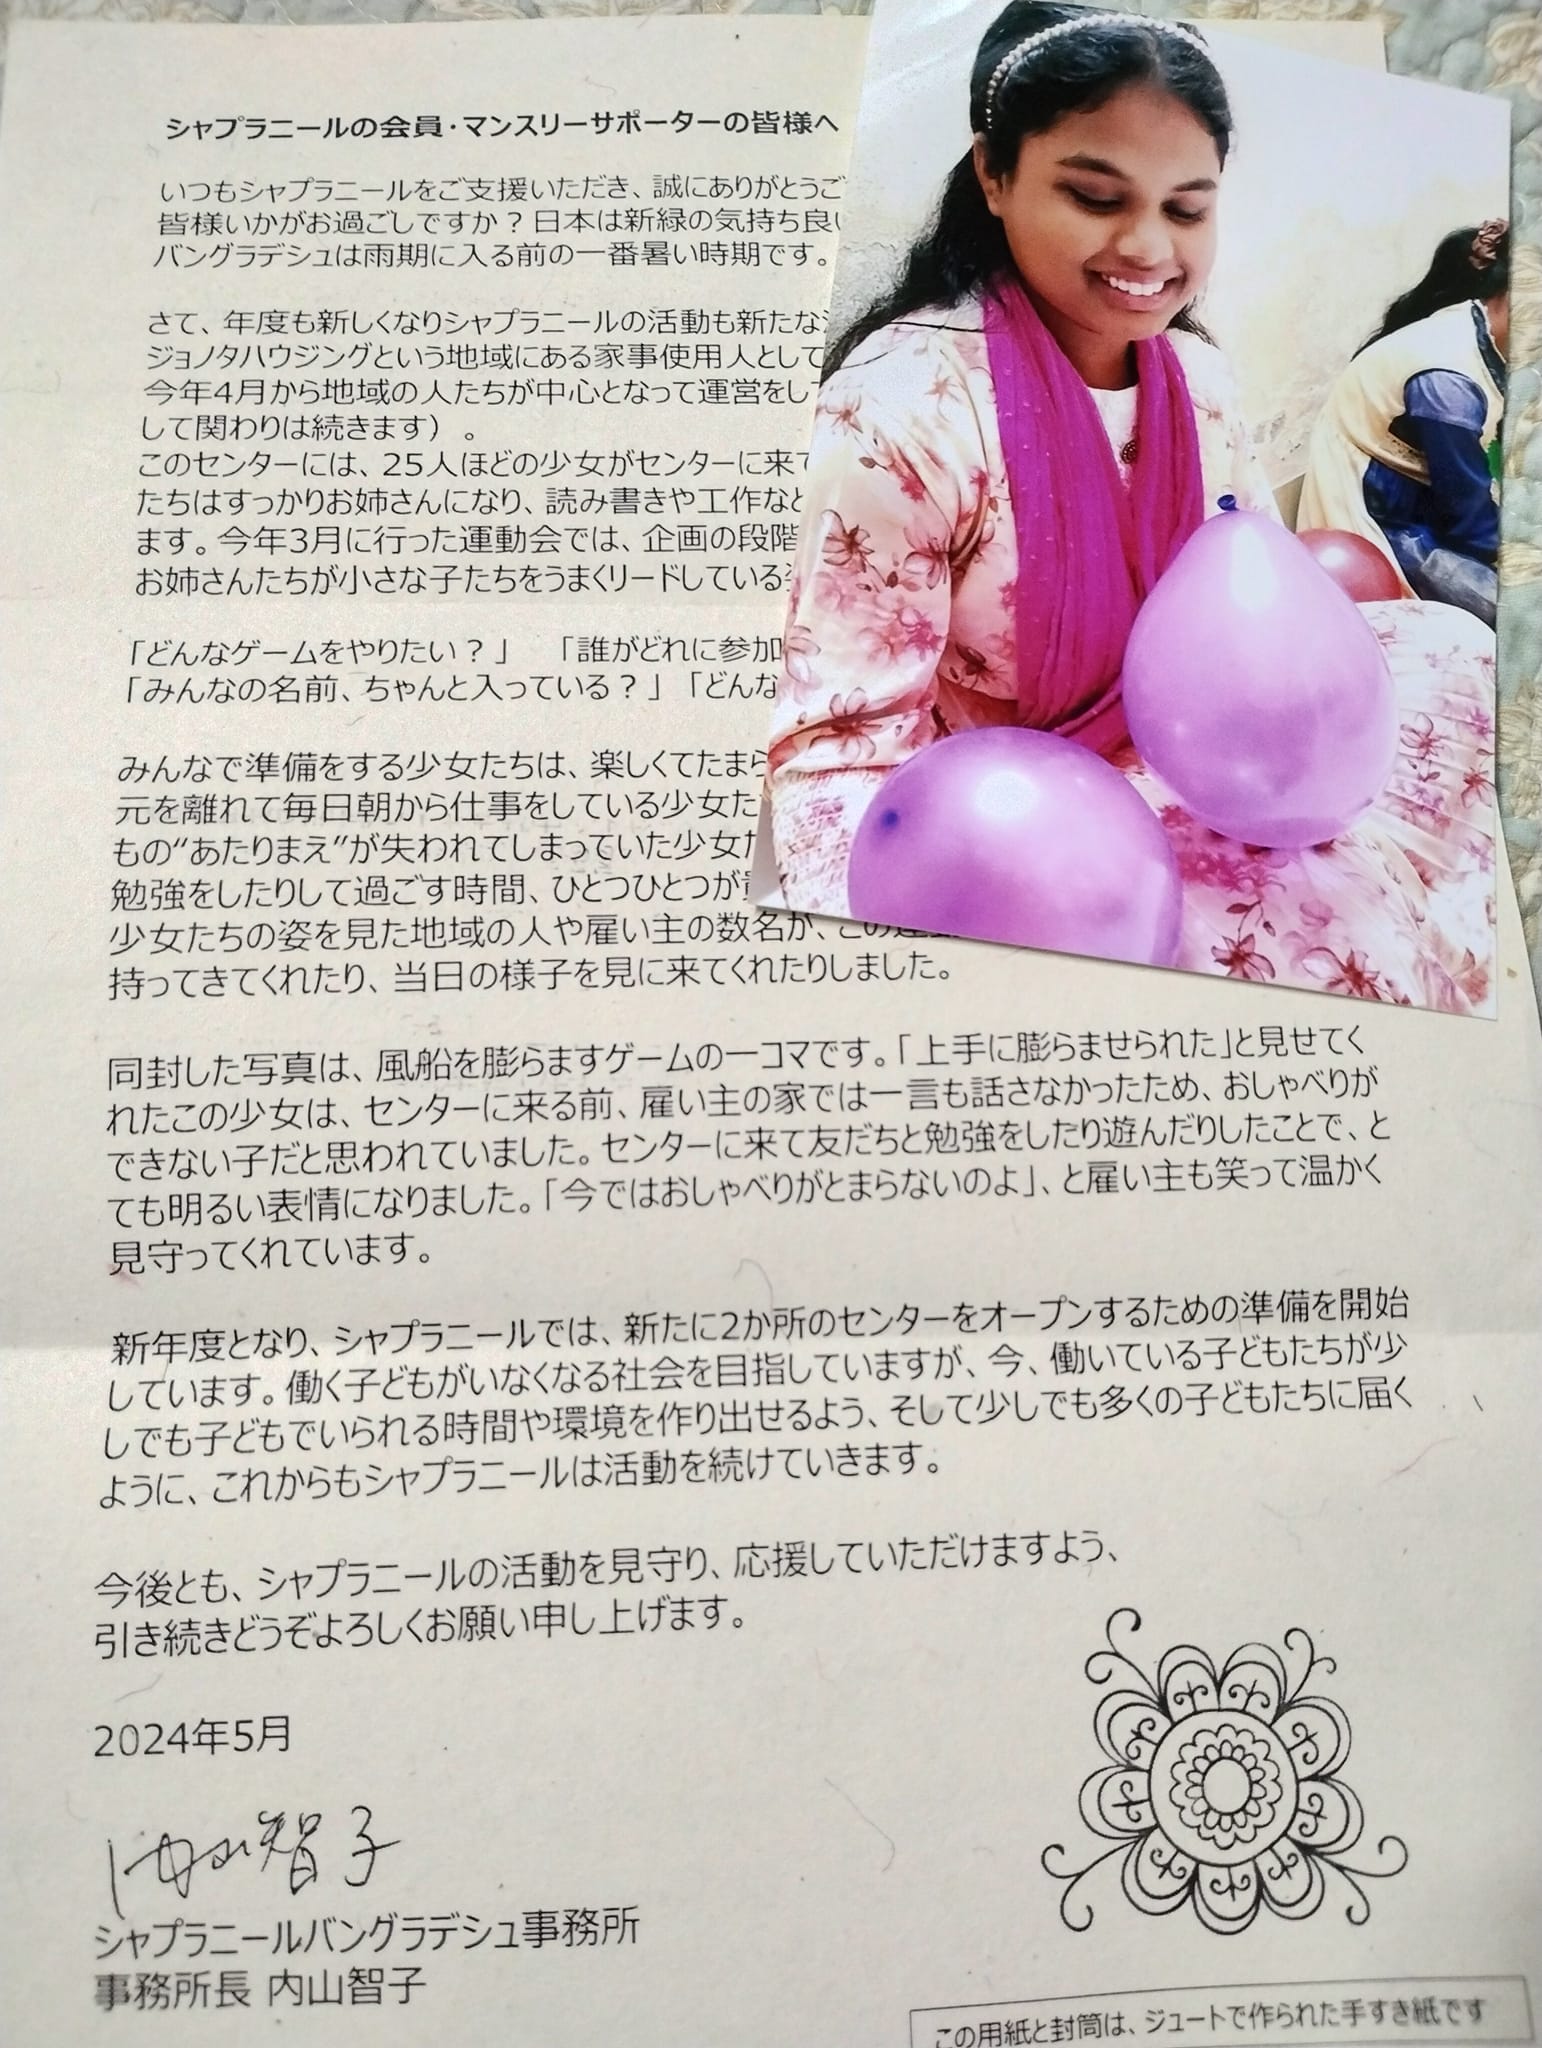 シャプラニールの会員・マンスリーサポーターの皆様へ
いつもシャプラニールをご支援いただき、誠にありがとうご
皆様いかがお過ごしですか？日本は新緑の気持ち良い
バングラデシュは雨期に入る前の一番暑い時期です。
さて、年度も新しくなりシャプラニールの活動も新たな
ジョノタハウジングという地域にある家事使用人として
今年4月から地域の人たちが中心となって運営をし
して関わりは続きます）。
このセンターには、25人ほどの少女がセンターに来て
たちはすっかりお姉さんになり、読み書きや工作など
ます。今年3月に行った運動会では、企画の段階
お姉さんたちが小さな子たちをうまくリードしている
「どんなゲームをやりたい？」　「誰がどれに参加
「みんなの名前、ちゃんと入っている？」「どんな
みんなで準備をする少女たちは、楽しくてたまら
元を離れて毎日朝から仕事をしている少女た
もの“あたりまえ”が失われてしまっていた少女た
勉強をしたりして過ごす時間、ひとつひとつが
少女たちの姿を見た地域の人や雇い主の数名が、この
持ってきてくれたり、当日の様子を見に来てくれたりしました。
同封した写真は、風船を膨らますゲームの一コマです。「上手に膨らませられた」と見せてく
れたこの少女は、センターに来る前、雇い主の家では一言も話さなかったため、おしゃべりが
できない子だと思われていました。センターに来て友だちと勉強をしたり遊んだりしたことで、と
ても明るい表情になりました。「今ではおしゃべりがとまらないのよ」、と雇い主も笑って温かく
見守ってくれています。
新年度となり、シャプラニールでは、新たに2か所のセンターをオープンするための準備を開始
しています。働く子どもがいなくなる社会を目指していますが、今、働いている子どもたちが少
しでも子どもでいられる時間や環境を作り出せるよう、そして少しでも多くの子どもたちに届く
ように、これからもシャプラニールは活動を続けていきます。
今後とも、シャプラニールの活動を見守り、応援していただけますよう、
引き続きどうぞよろしくお願い申し上げます。
2024年5月
内山智子
シャプラニールバングラデシュ事務所
事務所長 内山智子
この用紙と封筒は、ジュートで作られた手すき紙です